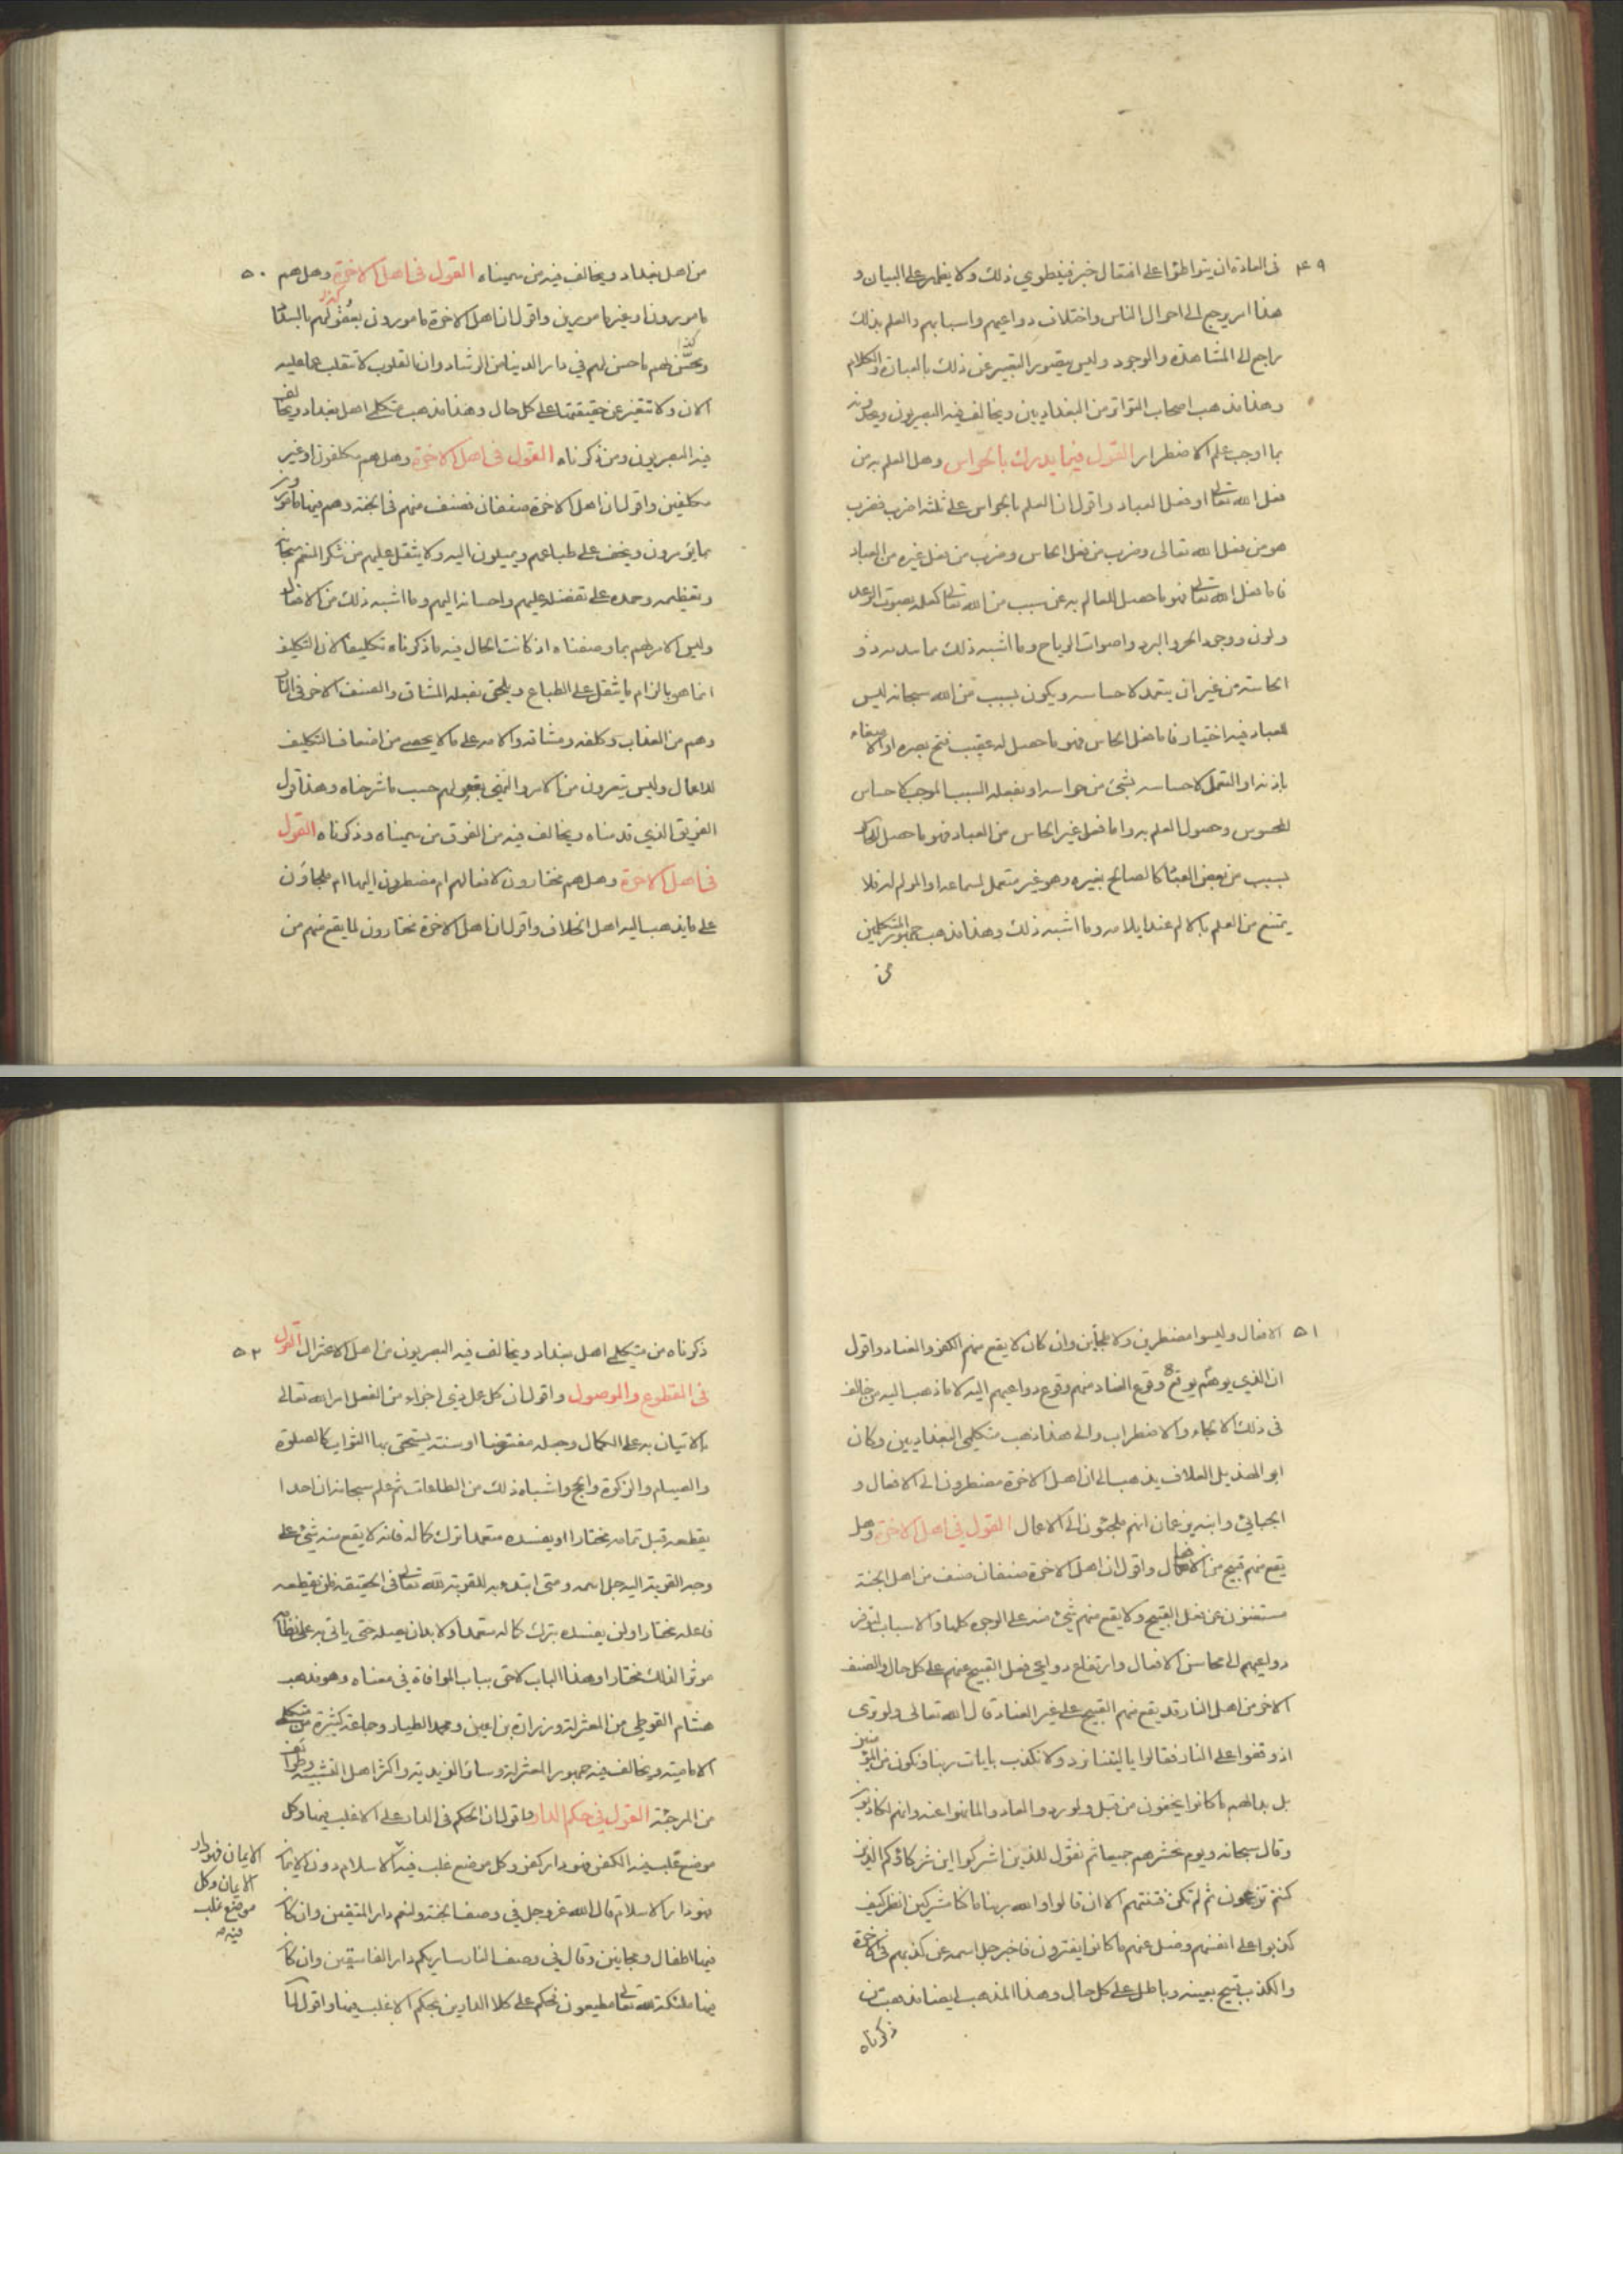 ٤٩
في العادة ان يتواطؤا على افتعال خبر فينطوي ذلك ولا يظهر على البيان و
هذا امر يرجع الى احوال الناس واختلاف دواعيهم واسبابهم والعلم بذلك
راجع الى المشاهدة والوجود وليس يتصور التعبير عن ذلك بالعبارة والكلام
وهذا مذهب اصحاب التواتر من البغداديين ويخالف فيه البصريون ويحدونه
بما اوجب علم الاضطرار القول فيما يدرك بالحواس وهل العلم به من
فعل الله تعالى او فعل العباد واقول ان العلم بالحواس على ثلثه اضرب فضرب
هو من فعل الله تعالى وضرب من فعل الحاس وضرب من فعل غيره من العباد
فاما فعل الله تعالى فهو ما حصل للعالم به عن سبب من الله تعالى كعلمه بصوت الرعد
ولون ووجود الحر والبرد واصوات الرياح وما اشبه ذلك مما يبدو
الحاسة من غير ان يتعمد لاحساسه ويكون بسبب من الله سبحانه ليس
للعباد فيه اختيار فاما فعل الحاس فهو ما حصل له عقيب فتح بصره او الاصغاء
باذنه او التعمل لاحساسه بشئ من حواسه او بفعله السبب الموجب لاحساس
المحسوس وحصول العلم به واما فعل غير الحاس من العباد فهو ما حصل للحاس
بسبب من بعض العباد كالصائح بغيره وهو غير متعمل لسماعه او المولم له فلا
يمتنع من العلم بالالم عند ايلامه وما اشبه ذلك وهذا مذهب جمهور المتكلمين
من
٥٠
من اهل بغداد ويخالف فيه من سميناه القول في اهل الاخرة وهل هم
مامورون او غير مامورين واقول ان اهل الاخرة مامورون بعقولهم بالسداد
كذا
ويحسن لهم ما حسن لهم في دار الدنيا من الرشاد وان القلوب لا تنقلب عما عليه
الان ولا تتغير عن حقيقتها على كل حال وهذا مذهب متكلمي اهل بغداد ويخالف
فيه البصريون ومن ذكرناه القول في اهل الاخرة وهل هم مكلفون او غير
مكلفين واقول ان اهل الاخرة صنفان فصنف منهم في الجنة وهم فيها مامورون
بما يؤثرون ويخف على طباعهم ويميلون اليه ولا يثقل عليهم من شكر المنعم سبحانه
وتعظيمه وحمده على تفضله عليهم واحسانه اليهم وما اشبه ذلك من الافعال
وليس الامر لهم بما وصفناه اذ كانت الحال فيه ما ذكرناه تكليفا لان التكليف
انما هو بالزام ما يثقل على الطباع ويلحق بفعله المشاق والصنف الاخر في النار
وهم من العذاب وكلفه ومشاقه والامه على ما لا يحصى من اصناف التكليف
للاعمال وليس يتعرون من الامر والنهي بعقولهم حسب ما شرحناه وهذا قول
الفريق الذي قدمناه ويخالف فيه من الفرق من سميناه وذكرناه القول
في اهل الاخرة وهل هم مختارون لافعالهم ام مضطرون اليها ام ملجاؤن
على ما يذهب اليه اهل الخلاف واقول ان اهل الاخرة مختارون لما يقع منهم من
٥١
الافعال وليسوا مضطرين ولا ملجأين وان كان لا يقع منهم الكفر والفساد واقول
ان الذي يوهم وقوع الفساد منهم وقوع دواعيهم اليه لا ما ذهب اليه من خالف
في ذلك الالجاء والاضطراب والى هذا ذهب متكلمي البغداديين وكان
ابو الهذيل العلاف يذهب الى ان اهل الاخرة مضطرون الى الافعال و
الجبائي وابنه يزعمان انهم ملجئون الى الاعمال القول في اهل الاخرة وهل
يقع منهم قبيح من الافعال واقول ان اهل الاخرة صنفان صنف من اهل الجنة
مستغنون عن فعل القبيح ولا يقع منهم شئ منه على الوجوه كلها والاسباب لتوفر
دواعيهم الى محاسن الافعال وارتفاع دواعي فعل القبيح عنهم على كل حال والصنف
الاخر من اهل النار قد يقع منهم القبيح على غير العناد قال الله تعالى ولو ترى
اذ وقفوا على النار فقالوا يا ليتنا نرد ولا نكذب بايات ربنا ونكون من المؤمنين
بل بدا لهم ما كانوا يخفون من قبل ولو ردوا لعادوا لما نهوا عنه وانهم لكاذبون
وقال سبحانه ويوم نحشرهم جميعا ثم نقول للذين اشركوا اين شركاؤكم الذين
كنتم تزعمون ثم لم تكن فتنتهم الا ان قالوا والله ربنا ما كنا مشركين انظر كيف
كذبوا على انفسهم وضل عنهم ما كانوا يفترون فاخبر جل اسمه عن كذبهم في الاخرة
والكذب قبيح بعينه وباطل على كل حال وهذا المذهب ايضا مذهب من
ذكرناه
٥٢
ذكرناه من متكلمي اهل بغداد ويخالف فيه البصريون من اهل الاعتزال القول
في المقطوع والموصول واقول ان كل عمل ذي اجزاء من الفعل امر الله تعالى
بالاتيان به على الكمال وجعله مفترضا او سنة يستحق بها الثواب كالصلوة
والصيام والزكوة والحج واشباه ذلك من الطاعات ثم علم سبحانه ان احدا
يقطعه قبل تمامه مختارا او يفسده متعمدا ترك كماله فانه لا يقع منه شئ على
وجه القربة اليه جل اسمه ومتى ابتدء به للقربة لله تعالى في الحقيقة فلن يقطعه
فاعله مختارا ولن يفسده بترك كماله متعمدا ولا بد ان يصله حتى ياتي به على نظامه
موثرا لذلك مختارا وهذا الباب لاحق بباب الموافاة في معناه وهو مذهب
هشام الفوطي من المعتزلة وزرارة بن اعين ومحمد الطيار وجماعة كثيرة من متكلمي
الامامية ويخالف فيه جمهور المعتزلة وسائر الزيدية واكثر اهل التشبيه وطوائف
من المرجئة القول في حكم الدار واقول ان الحكم في الدار على الاغلب فيها وكل
موضع غلب فيه الكفر فهو دار كفر وكل موضع غلب فيه الاسلام دون الايمان
فهو دار الاسلام قال الله عز وجل في وصف الجنة ولنعم دار المتقين وان كان
فيها اطفال ومجانين وقال في وصف النار ساريكم دار الفاسقين وان كان
فيها ملئكة لله تعالى مطيعون فحكم على كلا الدارين بحكم الاغلب فيها واقول لما
الايمان فهو دار
الايمان وكل
موضع غلب
فيه